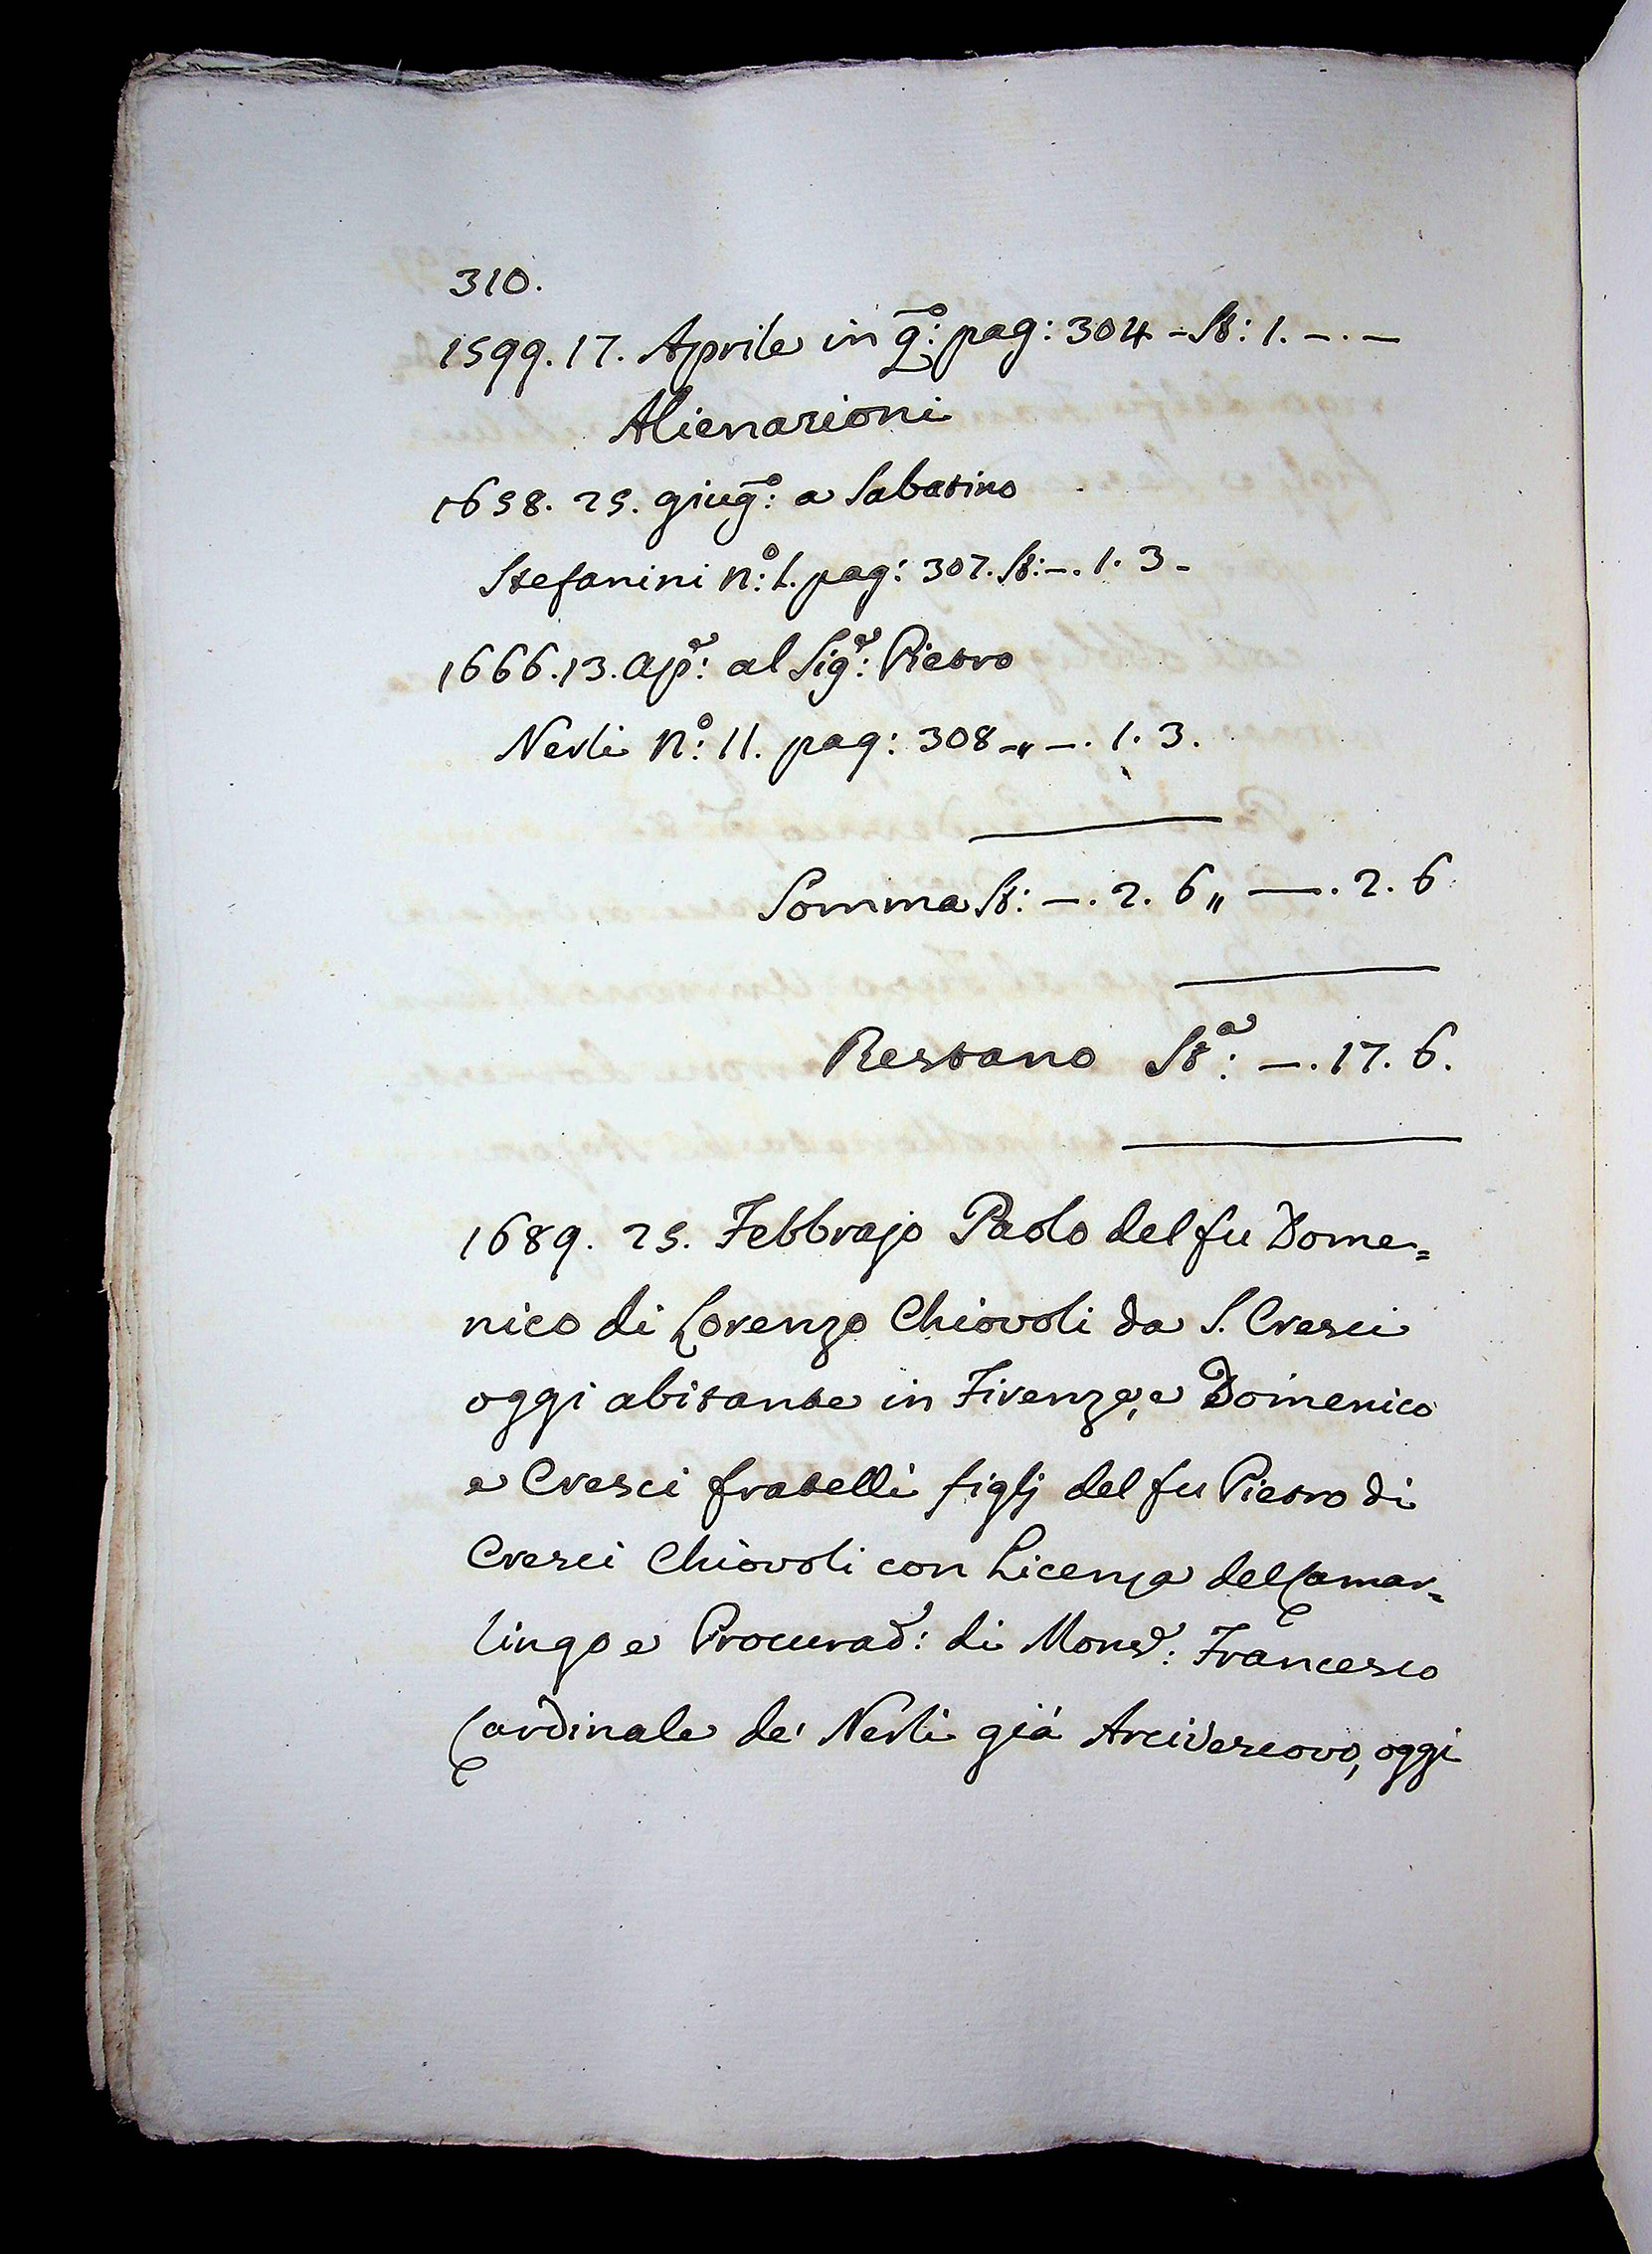 310.
1599. 17. Aprile in q̃o: pag: 304 - St: 1. -. -
Alienazioni
1658. 25. giugo: a Sabatino
Stefanini no: 1. pag: 307. St: -. 1. 3 -
1666. 13. ape: al Sige: Pietro
Nerli no: 11. pag: 308 -„ -. 1. 3.
Somma St: -. 2. 6 „ —. 2. 6
Restano Sta: -. 17. 6.
1689. 25. Febbrajo Paolo del fu Dome=
nico di Lorenzo Chiovoli da S. Cresci
oggi abitante in Firenze, e Domenico
e Cresci fratelli figlj del fu Pietro di
Cresci Chiovoli con Licenza del Camar=
lingo e Procurad: di Monsr: Francesco
Cardinale de' Nerli già Arcivescovo, oggi